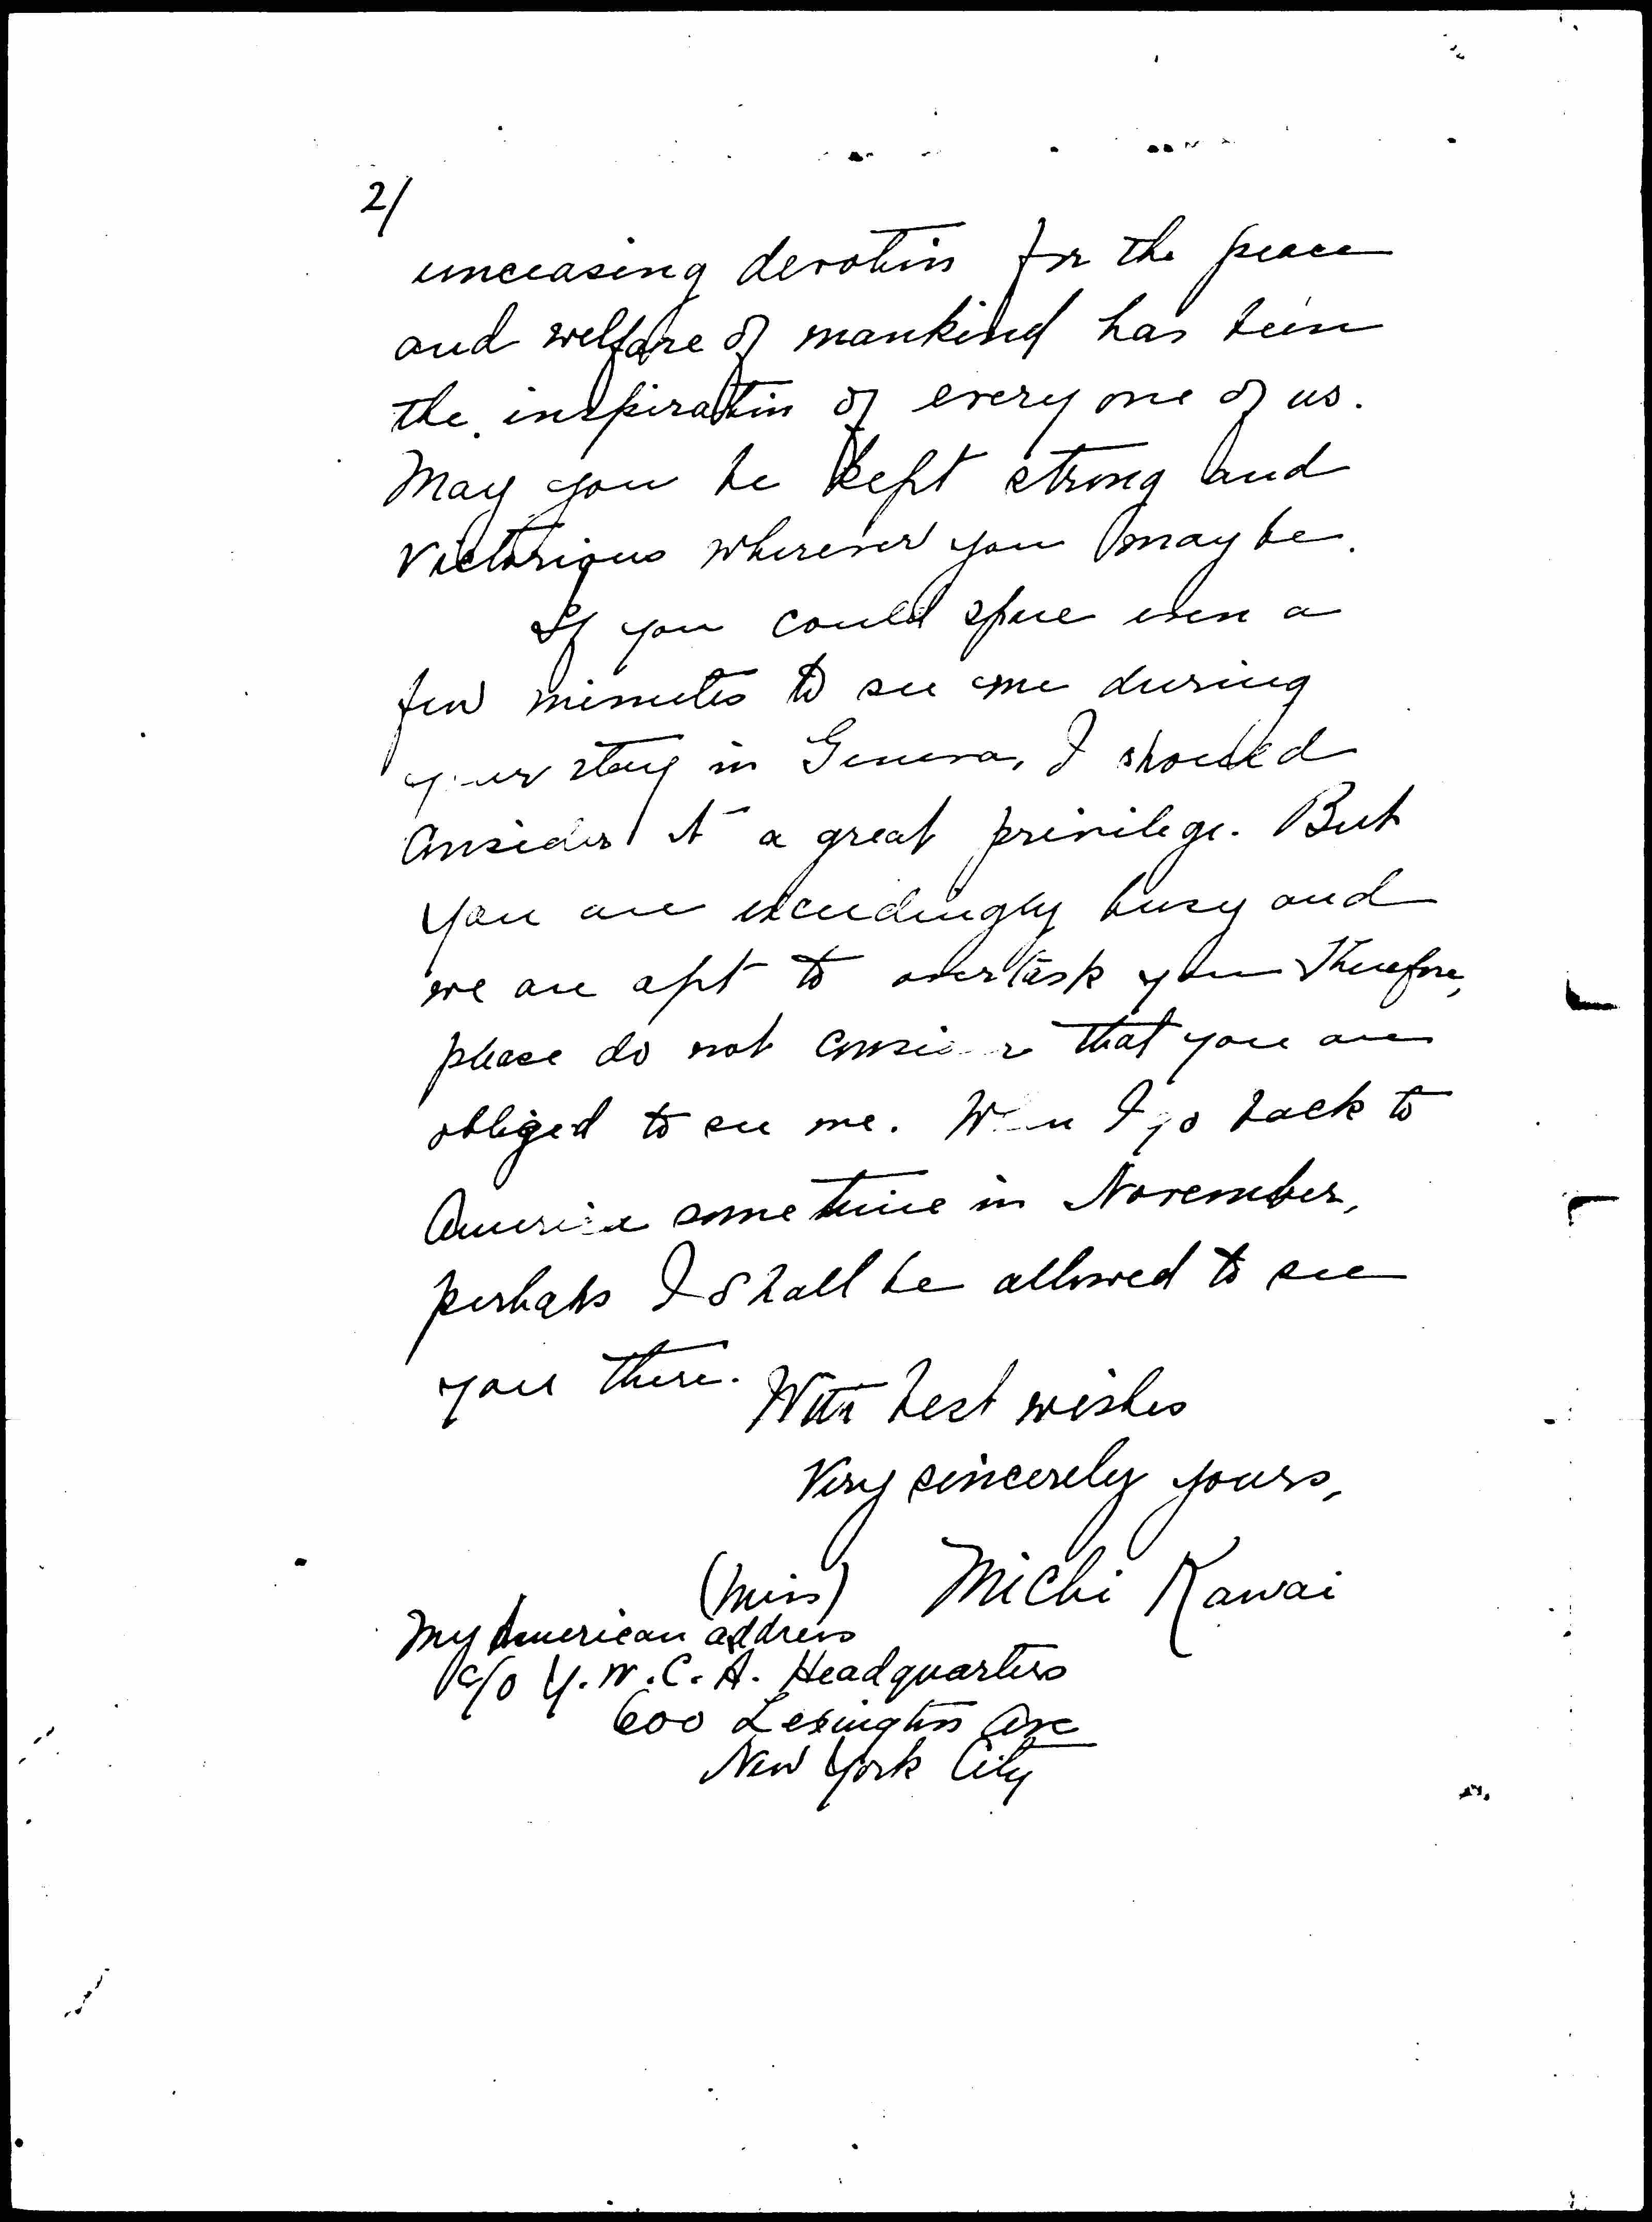 2/
unceasing devotion for the peace
and welfare of mankind has been
the inspiration of every one of us.
May you be kept strong and
victorious wherever you may be.
If you could spare even a
few minutes to see me during
your stay in Geneva, I should
consider it a great privilege. But
you are exceedingly busy and
we are apt to overtask you Therefore,
please do not consider that you are
obliged to see me. When I go back to
America some time in November,
perhaps I shall be allowed to see
you there.
With best wishes
Very sincerely yours,
(Miss) Michi Kawai
My American address
c/o Y.W.C.A. Headquarters
600 Lexington Ave
New York City